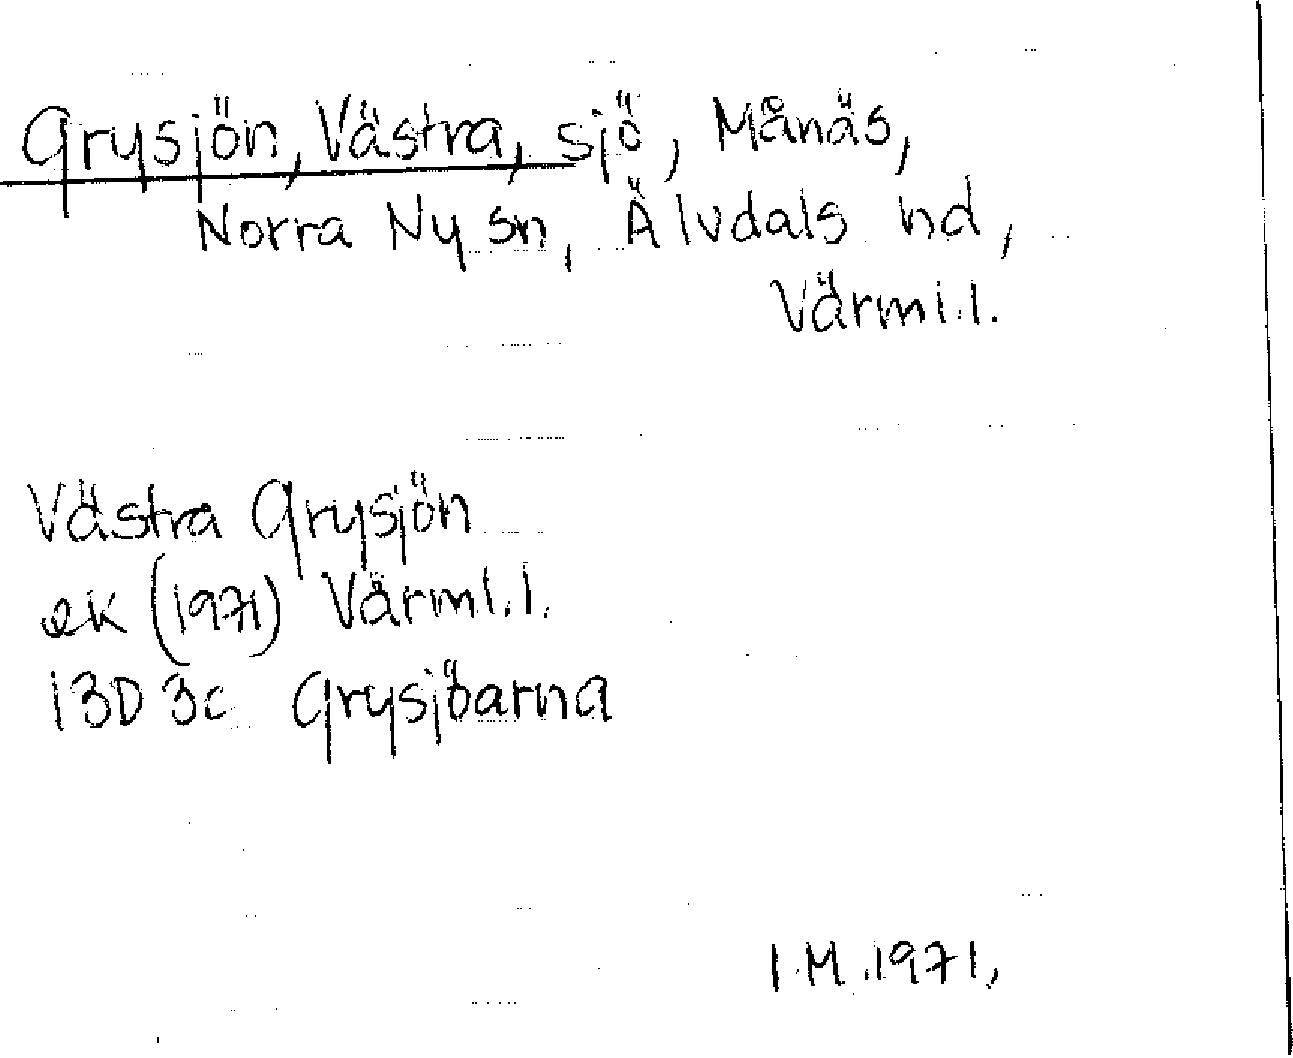 Grysjön, Västra, sjö, Månäs,
Norra Ny sn, Älvdals hd,
Värml.l.
Västra Grysjön
ek (1971) Värml.l.
13D 3c Grysjöarna
I.M.1971,